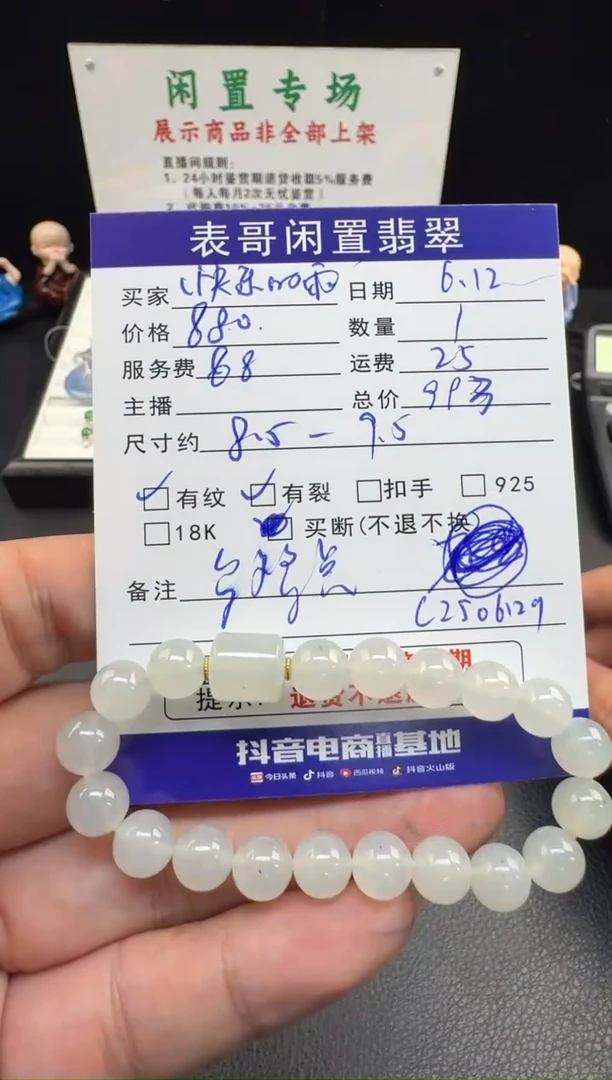 闲置专场
展示商品非全部上架
直播间规则:
1、24小时鉴赏期退货收取5%服务费
(每人每月2次无忧鉴赏)
表哥闲置翡翠
买家 日期 6.12
价格 880. 数量 1
服务费 88 运费 25
主播 总价 993
尺寸约 8.5 - 9.5
有纹 有裂 扣手 925
18K 买断(不退不换)
备注
C2506129
期
提示:
抖音电商直播基地
今日头条 抖音 西瓜视频 抖音火山版